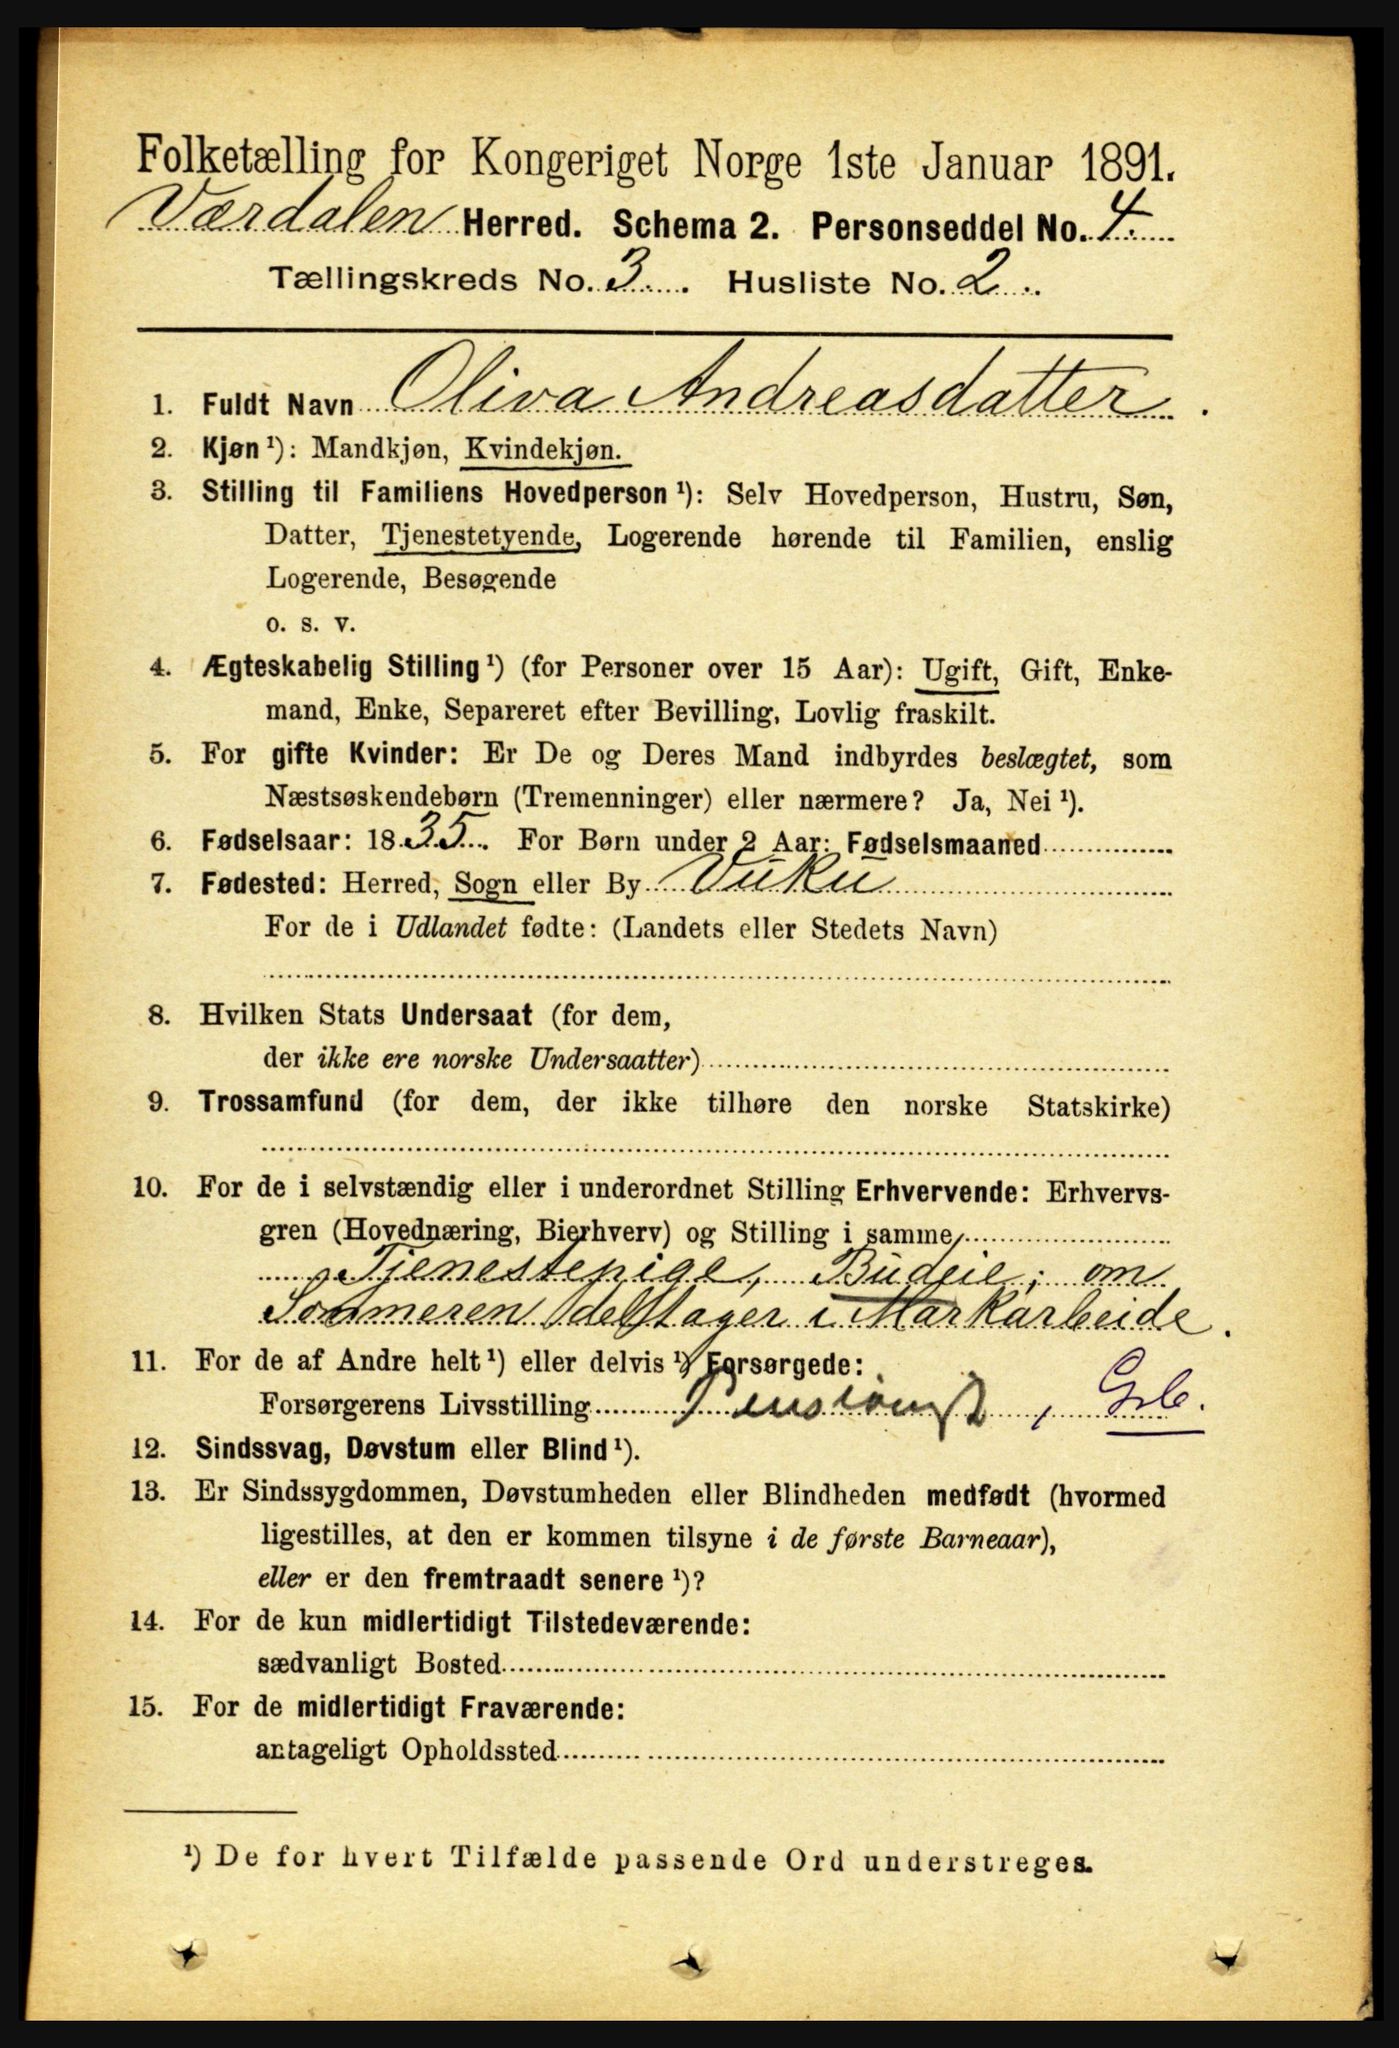 Folketælling for Kongeriget Norge 1ste Januar 1891.
Værdalen Herred. Schema 2. Personseddel No. 4.
Tællingskreds No. 3. Husliste No. 2.
1. Fuldt Navn Oliva Andreasdatter.
2. Kjøn ¹): Mandkjøn, Kvindekjøn.
3. Stilling til Familiens Hovedperson ¹): Selv Hovedperson, Hustru, Søn,
Datter, Tjenestetyende, Logerende hørende til Familien, enslig
Logerende, Besøgende
o. s. v.
4. Ægteskabelig Stilling ¹) (for Personer over 15 Aar): Ugift, Gift, Enke-
mand, Enke, Separeret efter Bevilling, Lovlig fraskilt.
5. For gifte Kvinder: Er De og Deres Mand indbyrdes beslægtet, som
Næstsøskendebørn (Tremenninger) eller nærmere? Ja, Nei ¹).
6. Fødselsaar: 1835. For Børn under 2 Aar: Fødselsmaaned
7. Fødested: Herred, Sogn eller By Vuku
For de i Udlandet fødte: (Landets eller Stedets Navn)
8. Hvilken Stats Undersaat (for dem,
der ikke ere norske Undersaatter)
9. Trossamfund (for dem, der ikke tilhøre den norske Statskirke)
10. For de i selvstændig eller i underordnet Stilling Erhvervende: Erhvervs-
gren (Hovednæring, Bierhverv) og Stilling i samme
Tjenestepige, Budeie; om
Sommeren deltager i Markarbeide.
11. For de af Andre helt ¹) eller delvis ¹) Forsørgede:
Forsørgerens Livsstilling , Grb.
12. Sindssvag, Døvstum eller Blind ¹).
13. Er Sindssygdommen, Døvstumheden eller Blindheden medfødt (hvormed
ligestilles, at den er kommen tilsyne i de første Barneaar),
eller er den fremtraadt senere ¹)?
14. For de kun midlertidigt Tilstedeværende:
sædvanligt Bosted
15. For de midlertidigt Fraværende:
antageligt Opholdssted
¹) De for hvert Tilfælde passende Ord understreges.